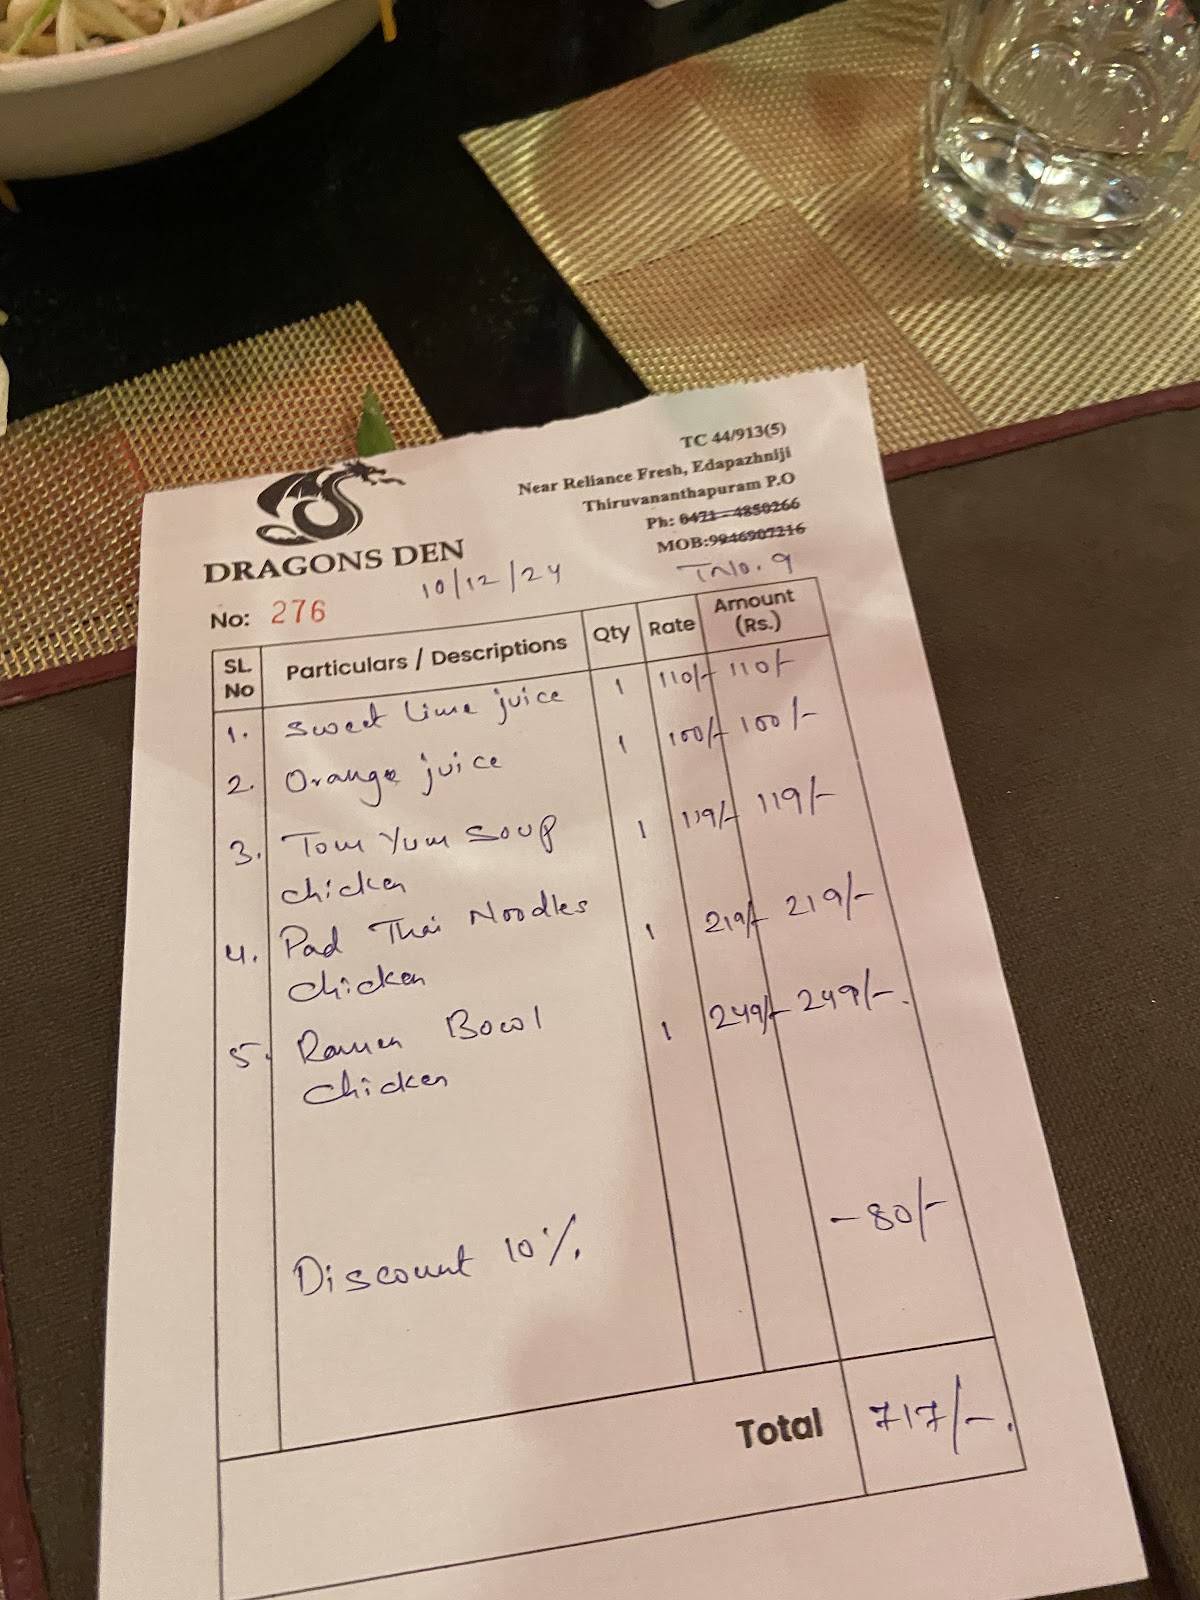 TC 44/913(5)
Near Reliance Fresh, Edapazhniji
Thiruvananthapuram P.O
Ph: 0471 - 4850266
MOB:9946907216
DRAGONS DEN
No: 276
10/12/24
TNo. 9
SL No Particulars / Descriptions Qty Rate Amount (Rs.)
1. Sweet Lime juice 1 110/- 110/-
2. Orange juice 1 100/- 100/-
3. Tom Yum Soup 1 119/- 119/-
chicken
4. Pad Thai Noodles 1 219/- 219/-
chicken
5. Ramen Bowl 1 249/- 249/-.
chicken
Discount 10%. -80/-
Total 717/-.